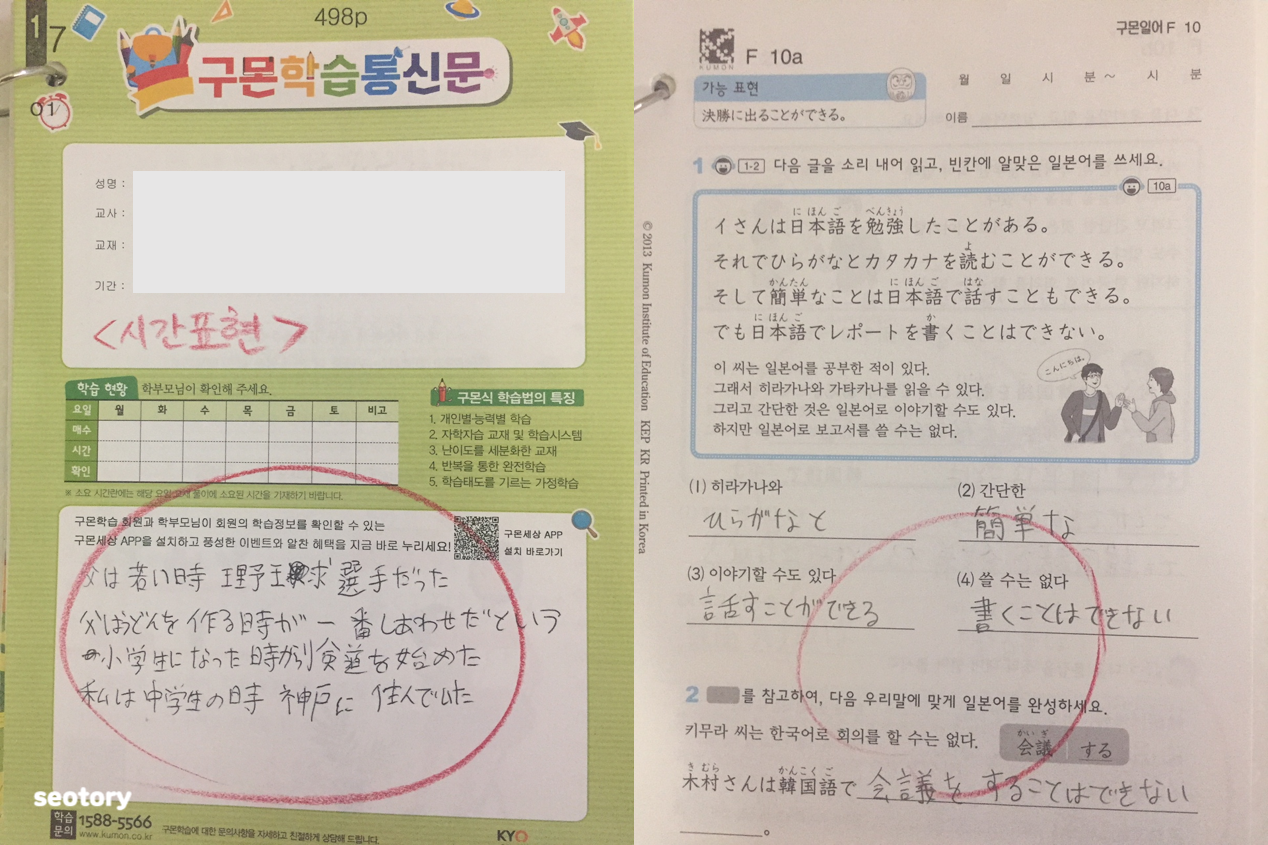 17
01
498p
구몬학습통신문
성명 :
교사 :
교재 :
기간 :
<시간표현>
학습 현황 학부모님이 확인해 주세요.
요일 월 화 수 목 금 토 비고
매수
시간
확인
※ 소요 시간란에는 해당 요일 교재 풀이에 소요된 시간을 기재하기 바랍니다.
구몬식 학습법의 특징
1. 개인별·능력별 학습
2. 자학자습 교재 및 학습시스템
3. 난이도를 세분화한 교재
4. 반복을 통한 완전학습
5. 학습태도를 기르는 가정학습
구몬학습 회원과 학부모님이 회원의 학습정보를 확인할 수 있는
구몬세상 APP을 설치하고 풍성한 이벤트와 알찬 혜택을 지금 바로 누리세요!
구몬세상 APP
설치 바로가기
父は若い時 野球選手だった
父はおどんを作る時が一番しあわせだという
小学生になった時から剣道を始めた
私は中学生の時 神戸に住んでいた
seotory
학습문의 1588-5566
www.kumon.co.kr
구몬학습에 대한 문의사항을 자세하고 친절하게 상담해 드립니다.
KYO
구몬일어 F 10
KUMON
F 10a
월 일 시 분~ 시 분
가능 표현
決勝に出ることができる。
이름
1 1-2 다음 글을 소리 내어 읽고, 빈칸에 알맞은 일본어를 쓰세요.
10a
にほんご べんきょう
イさんは日本語を勉強したことがある。
よ
それでひらがなとカタカナを読むことができる。
かんたん にほんご はな
そして簡単なことは日本語で話すこともできる。
にほんご か
でも日本語でレポートを書くことはできない。
이 씨는 일본어를 공부한 적이 있다.
그래서 히라가나와 가타카나를 읽을 수 있다.
그리고 간단한 것은 일본어로 이야기할 수도 있다.
하지만 일본어로 보고서를 쓸 수는 없다.
こんにちは。
(1) 히라가나와
ひらがなと
(2) 간단한
簡単な
(3) 이야기할 수도 있다
話すことができる
(4) 쓸 수는 없다
書くことはできない
2 를 참고하여, 다음 우리말에 맞게 일본어를 완성하세요.
키무라 씨는 한국어로 회의를 할 수는 없다.
かいぎ
会議 する
きむら かんこくご
木村さんは韓国語で 会議を することはできない
。
© 2013 Kumon Institute of Education KEP KR Printed in Korea